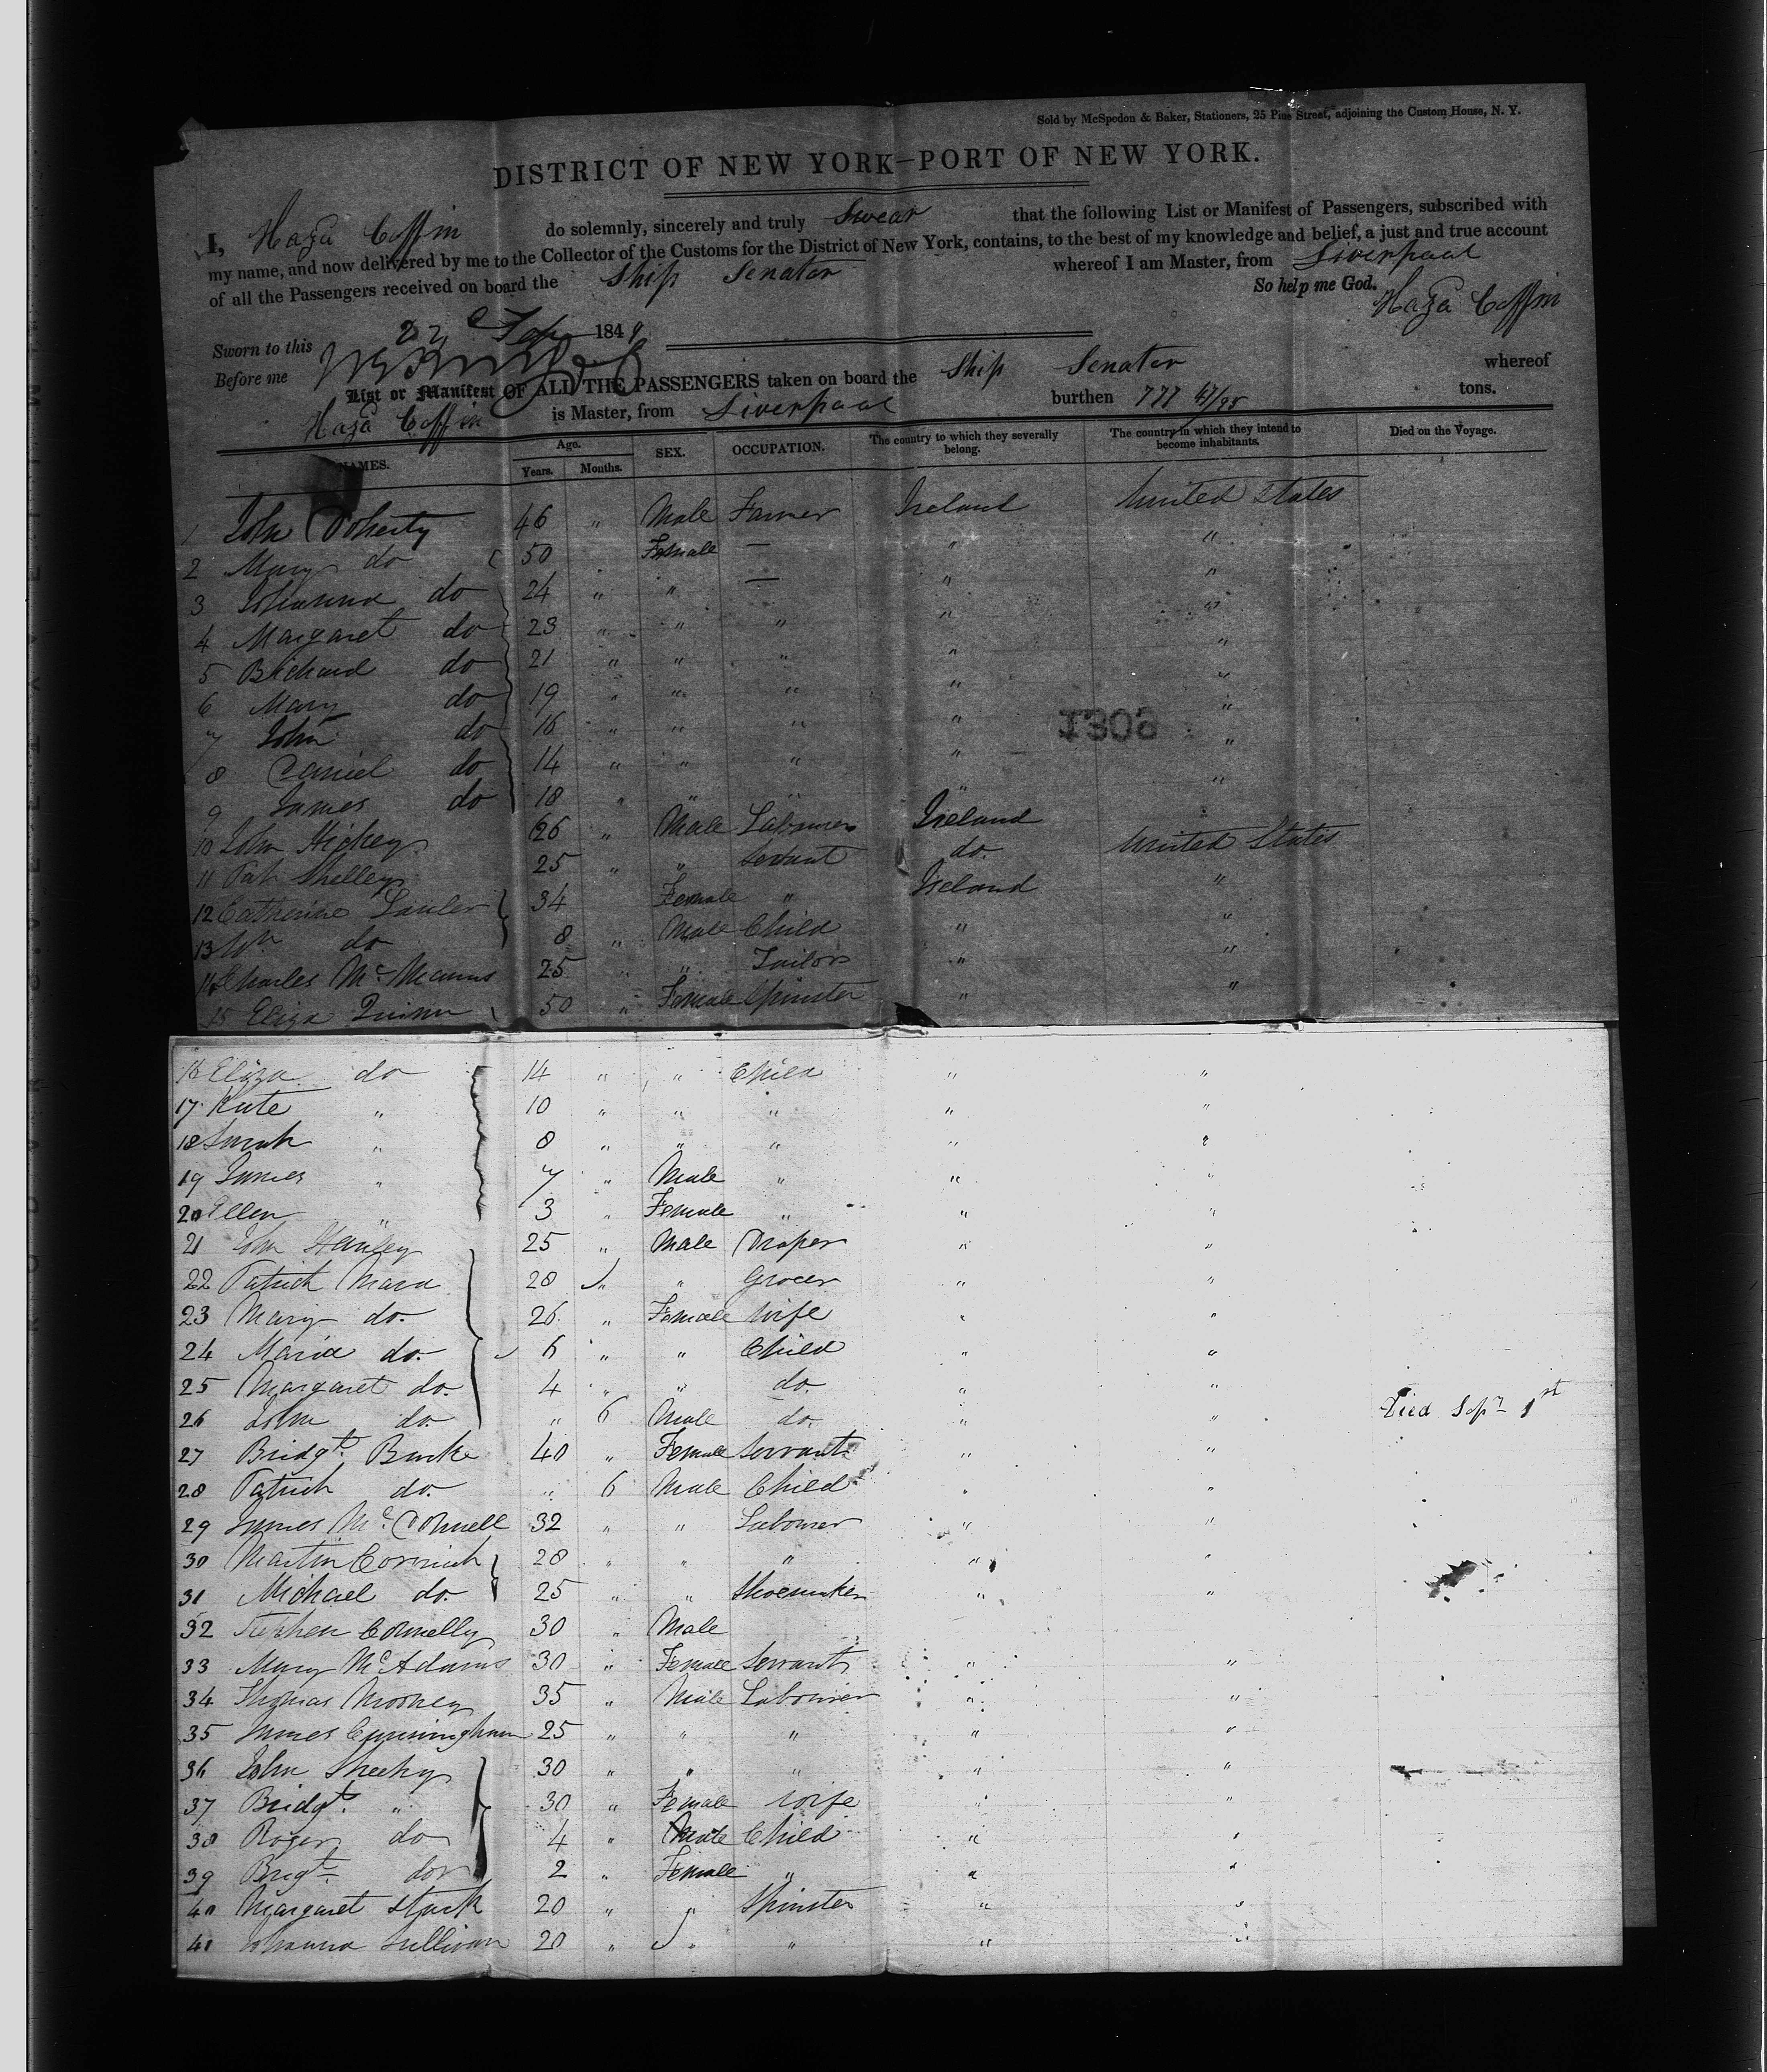 Sold by McSpedon & Baker, Stationers, 25 Pine Street, adjoining the Custom House, N. Y.
DISTRICT OF NEW YORK—PORT OF NEW YORK.
I, Coffin do solemnly, sincerely and truly Swear that the following List or Manifest of Passengers, subscribed with
my name, and now delivered by me to the Collector of the Customs for the District of New York, contains, to the best of my knowledge and belief, a just and true account
of all the Passengers received on board the Ship Senator whereof I am Master, from Liverpool
So help me God.
Coffin
Sworn to this 22 184
Before me
List or Manifest OF ALL THE PASSENGERS taken on board the Ship Senator whereof
Coffin is Master, from Liverpool burthen 777 47/95 tons.
NAMES. Age. Years. Months. SEX. OCCUPATION. The country to which they severally belong. The country in which they intend to become inhabitants. Died on the Voyage.
1 John Doherty 46 " Male Farmer Ireland United States
2 Mary do 50 Female — " "
3 Johanna do 24 " " — " "
4 Margaret do 23 " " " " "
5 Richard do 21 " " " " "
6 Mary do 19 " " " " "
7 John do 16 " " " " "
8 Daniel do 14 " " " " "
9 James do 18 " " " " "
10 John Hickey 26 " Male Labourer Ireland "
11 Pat Shelley 25 " " Servant do. United States
12 Catherine Lawler 34 Female " Ireland "
13 Wm do 8 " Male Child " "
14 Charles McManus 25 " " Tailor " "
15 Eliza Quinn 50 " Female Spinster " "
16 Eliza do 14 " " Child " "
17 Kate " 10 " " " " "
18 Sarah " 8 " " " " "
19 James " 7 " Male " " "
20 Ellen " 3 " Female " " "
21 John 25 " Male Draper " "
22 Patrick Mara 28 " " Grocer " "
23 Mary do. 26 " Female Wife " "
24 Maria do. 6 " " Child " "
25 Margaret do. 4 " " do. " "
26 John do. " 6 Male do. " " Died Sepr 1st
27 Bridgt. Burke 40 " Female Servant " "
28 Patrick do. " 6 Male Child " "
29 James McDonnell 32 " " Labourer " "
30 Martin Cormick 28 " " " " "
31 Michael do. 25 " " Shoemaker " "
32 Stephen Connelly 30 " Male
33 Mary McAdams 30 " Female Servant " "
34 Thomas Mooney 35 " Male Labourer " "
35 James Cunningham 25 " " " " "
36 John Sheehy 30 " " " " "
37 Bridgt. " 30 " Female Wife " "
38 Roger do 4 " Male Child " "
39 Brigt. do 2 " Female " " "
40 Margaret Stack 20 " " Spinster " "
41 Johanna Sullivan 20 " " " " "